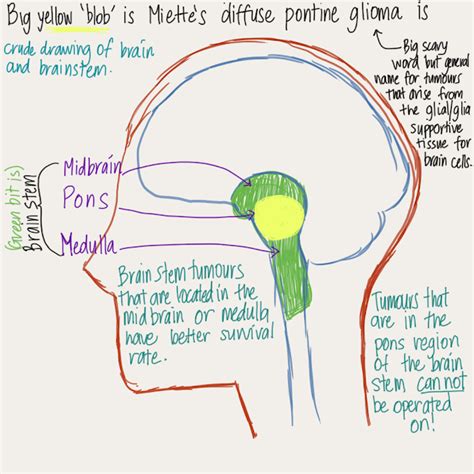 Big yellow 'blob' is Miette's diffuse pontine glioma is
crude drawing of brain
and brainstem.
Big scary
word but general
name for tumours
that arise from
the glial/glia
supportive
tissue for
brain cells.
(Green bit is)
Brain stem
Midbrain
Pons
Medulla
Brain stem tumours
that are located in the
mid brain or medulla
have better survival
rate.
Tumours that
are in the
pons region
of the brain
stem cannot
be operated
on!